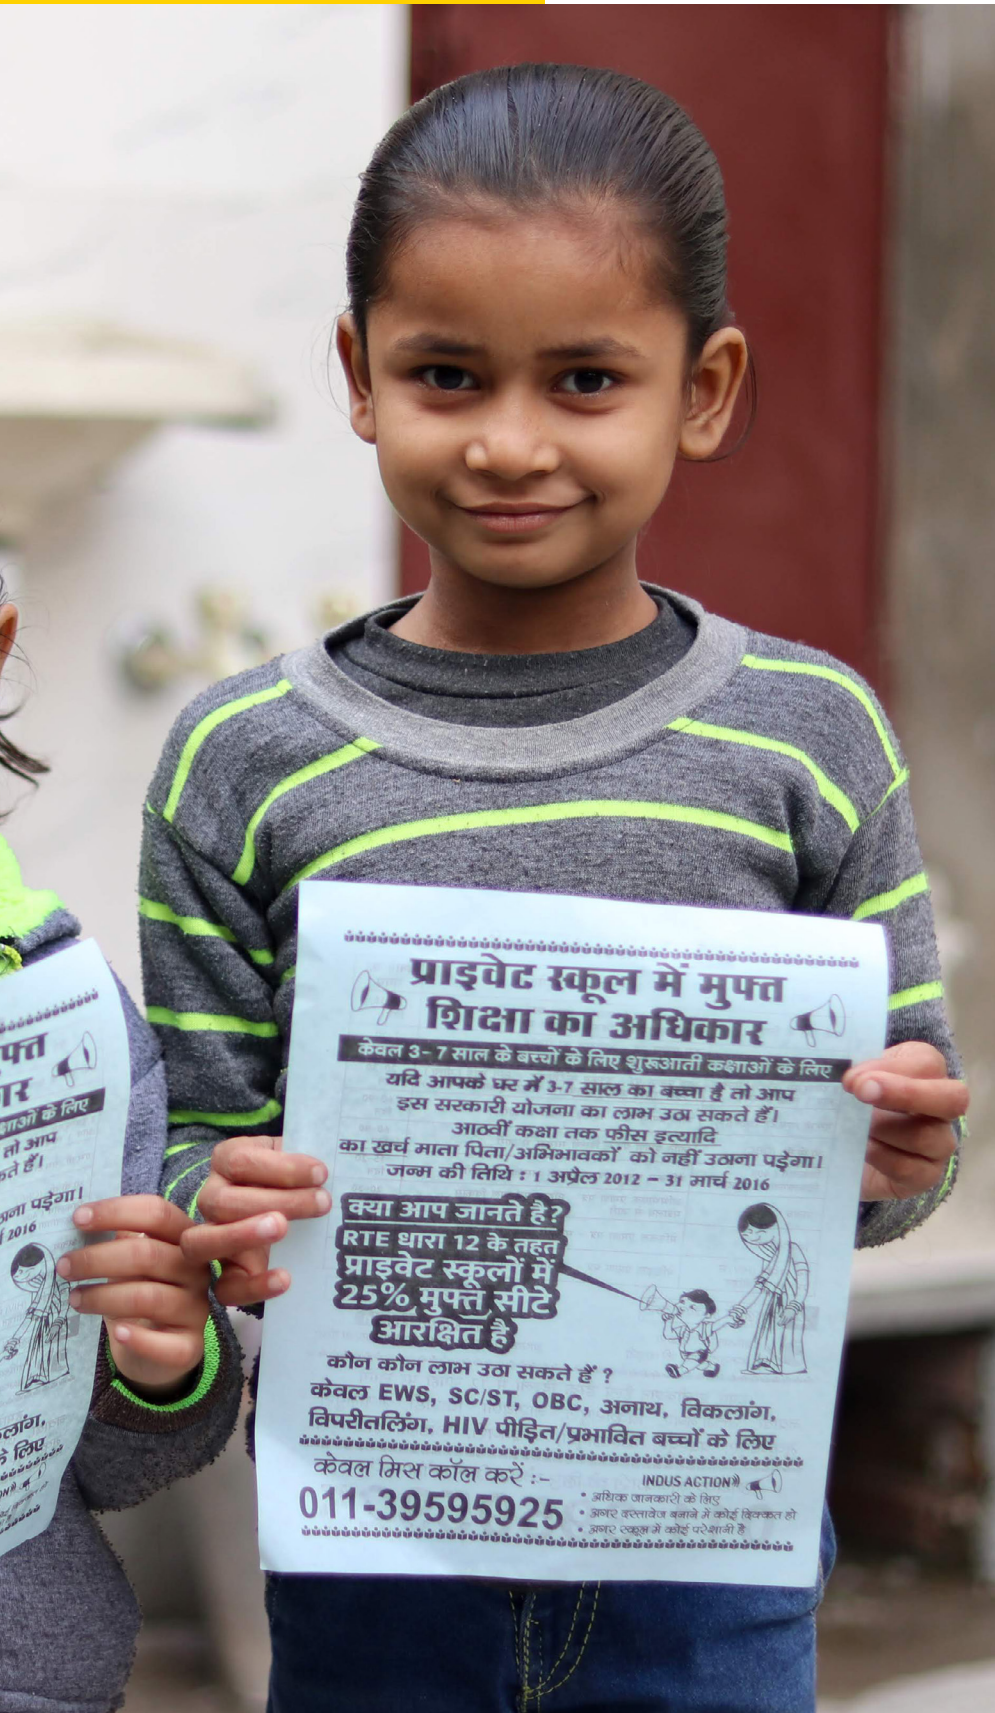 प्राइवेट स्कूल में मुफ्त
शिक्षा का अधिकार
केवल 3-7 साल के बच्चों के लिए शुरूआती कक्षाओं के लिए
यदि आपके घर में 3-7 साल का बच्चा है तो आप
इस सरकारी योजना का लाभ उठा सकते हैं।
आठवीं कक्षा तक फीस इत्यादि
का खर्च माता पिता/अभिभावकों को नहीं उठाना पड़ेगा।
जन्म की तिथि : 1 अप्रैल 2012 - 31 मार्च 2016
क्या आप जानते है?
RTE धारा 12 के तहत
प्राइवेट स्कूलों में
25% मुफ्त सीटे
आरक्षित है
कौन कौन लाभ उठा सकते हैं ?
केवल EWS, SC/ST, OBC, अनाथ, विकलांग,
विपरीतलिंग, HIV पीड़ित/प्रभावित बच्चों के लिए
केवल मिस कॉल करें :-
011-39595925
INDUS ACTION
• अधिक जानकारी के लिए
• अगर दस्तावेज बनाने में कोई दिक्कत हो
• अगर स्कूल में कोई परेशानी है
कक्षाओं के लिए
तो आप
पड़ेगा।
2016
के लिए